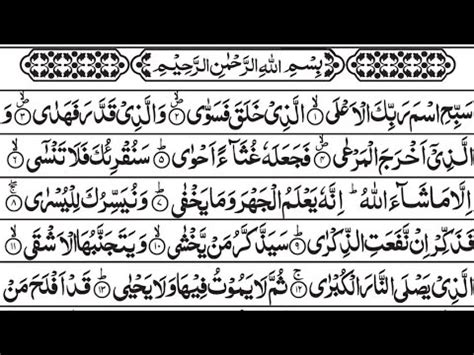 بِسْمِ اللهِ الرَّحْمٰنِ الرَّحِيْمِ
سَبِّحِ اسْمَ رَبِّكَ الْاَعْلَى ۙ﴿۱﴾ الَّذِيْ خَلَقَ فَسَوّٰى ۪ۙ﴿۲﴾ وَالَّذِيْ قَدَّرَ فَهَدٰى ۪ۙ﴿۳﴾ وَ
الَّذِيْٓ اَخْرَجَ الْمَرْعٰى ۪ۙ﴿۴﴾ فَجَعَلَهٗ غُثَآءً اَحْوٰى ؕ﴿۵﴾ سَنُقْرِئُكَ فَلَا تَنْسٰٓى ۙ﴿۶﴾
اِلَّا مَا شَآءَ اللهُ ؕ اِنَّهٗ يَعْلَمُ الْجَهْرَ وَمَا يَخْفٰى ؕ﴿۷﴾ وَنُيَسِّرُكَ لِلْيُسْرٰى ۚۖ﴿۸﴾
فَذَكِّرْ اِنْ نَّفَعَتِ الذِّكْرٰى ؕ﴿۹﴾ سَيَذَّكَّرُ مَنْ يَّخْشٰى ۙ﴿۱۰﴾ وَيَتَجَنَّبُهَا الْاَشْقَى ۙ﴿۱۱﴾
الَّذِيْ يَصْلَى النَّارَ الْكُبْرٰى ۚ﴿۱۲﴾ ثُمَّ لَا يَمُوْتُ فِيْهَا وَلَا يَحْيٰى ؕ﴿۱۳﴾ قَدْ اَفْلَحَ مَنْ